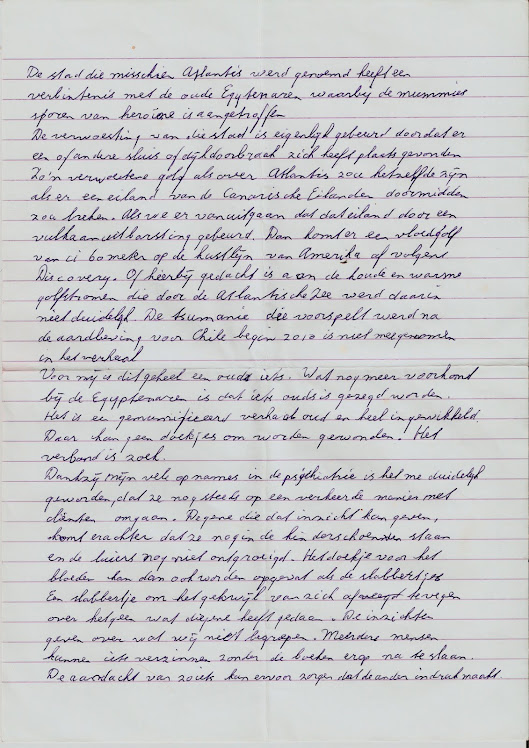 De stad die misschien Atlantis werd genoemd heeft een
verbintenis met de oude Egyptenaren waarbij de mummies
sporen van heroïne is aangetroffen
De verwoesting van die stad is eigenlijk gebeurd doordat er
een of andere sluis of dijkdoorbraak zich heeft plaats gevonden
Zo'n verwoestende golf als over Atlantis zou hetzelfde zijn
als er een eiland van de Canarische Eilanden doormidden
zou breken. Als we er vanuitgaan dat dat eiland door een
vulkaanuitbarsting gebeurd. Dan komt er een vloedgolf
van ci 60 meter op de kustlijn van Amerika af volgens
Discovery. Of hierbij gedacht is aan de koude en warme
golfstromen die door de Atlantische Zee werd daarin
niet duidelijk. De tsumanie die voorspelt werd na
de aardbeving voor Chile begin 2010 is niet meegenomen
in het verhaal
Voor mij is dit geheel een ouds iets. Wat nog meer voorkomt
bij de Egyptenaren is dat iets ouds is gezegd worden.
Het is een gemummificeerd verhaal oud en heel ingewikkeld.
Daar kan geen doekjes om worden gewonden. Het
verband is zoek.
Dankzij mijn vele opnames in de psychiatrie is het me duidelijk
geworden, dat ze nog steeds op een verkeerde manier met
cliënten omgaan. Degene die dat inzicht kan geven,
komt erachter dat ze nog in de kinderschoenen staan
en de luiers nog niet ontgroeid. Het doekje voor het
bloeden kan dan ook worden opgevat als de slabbertjes
Een slabbertje om het gekwijl van zich af te vegen
over hetgeen wat diegene heeft gedaan. De inzichten
geven over wat wij niet begrepen. Meerdere mensen
kunnen iets verzinnen zonder de boeken erop na te slaan.
De aandacht van zoiets kan ervoor zorgen dat de ander indruk maakt